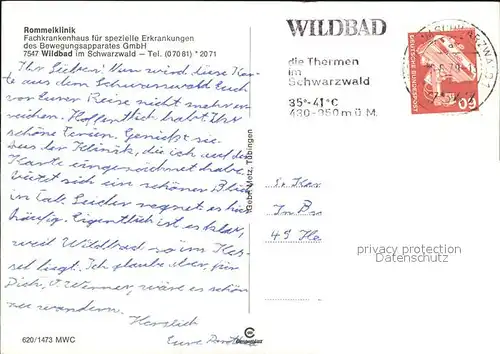 Rommelklinik
Fachkrankenhaus für spezielle Erkrankungen
des Bewegungsapparates GmbH
7547 Wildbad im Schwarzwald — Tel. (07081) *2071
Ihr Lieben! Nun wird diese Kar-
te aus dem Schwarzwald Euch
vor Eurer Reise nicht mehr er-
reichen. Hoffentlich habt Ihr
schöne Ferien. Genießt sie.
Aus der Klinik, die ich auf der
Karte eingezeichnet habe,
bietet sich ein schöner Blick
ins Tal. Leider regnet es hier
häufig. Eigentlich ist es klar,
weil Wildbad so im Kes-
sel liegt. Ich glaube aber, für
Dich, Werner, wäre es schön
zu wandern.
Herzlich
Eure
620/1473 MWC
Gebr. Metz, Tübingen
WILDBAD
die Thermen
im
Schwarzwald
35°-41°C
430-950 m ü. M.
DEUTSCHE BUNDESPOST
60
privacy protection
Datenschutz